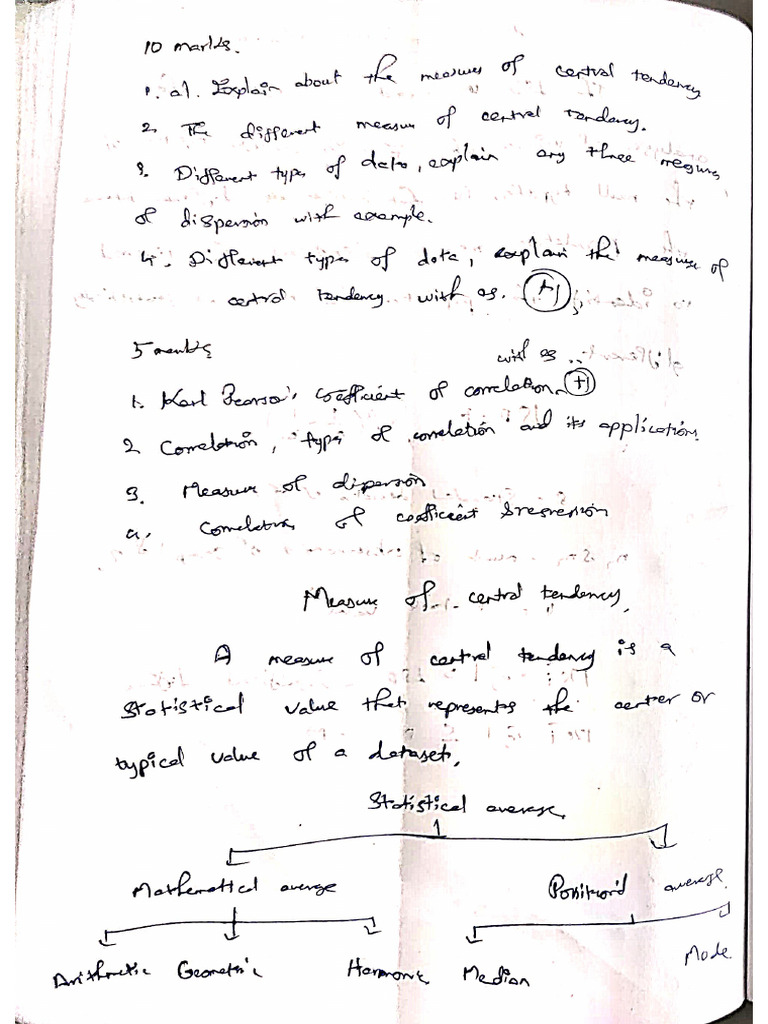 10 marks.
1. a). Explain about the measures of central tendency
2. The different measure of central tendency.
3. Different types of data, explain any three measures
of dispersion with example.
4. Different types of data, explain the measure of
central tendency with eg. +1
5 marks
with eg ..
1. Karl Pearson's coefficient of correlation. +1
2. Correlation, types of correlation and its application.
3. Measure of dispersion
4. Correlation of coefficient & regression
Measure of central tendency.
A measure of central tendency is a
statistical value that represents the center or
typical value of a dataset.
Statistical average.
Mathematical average Positional average.
Arithmetic Geometric Harmonic Median Mode